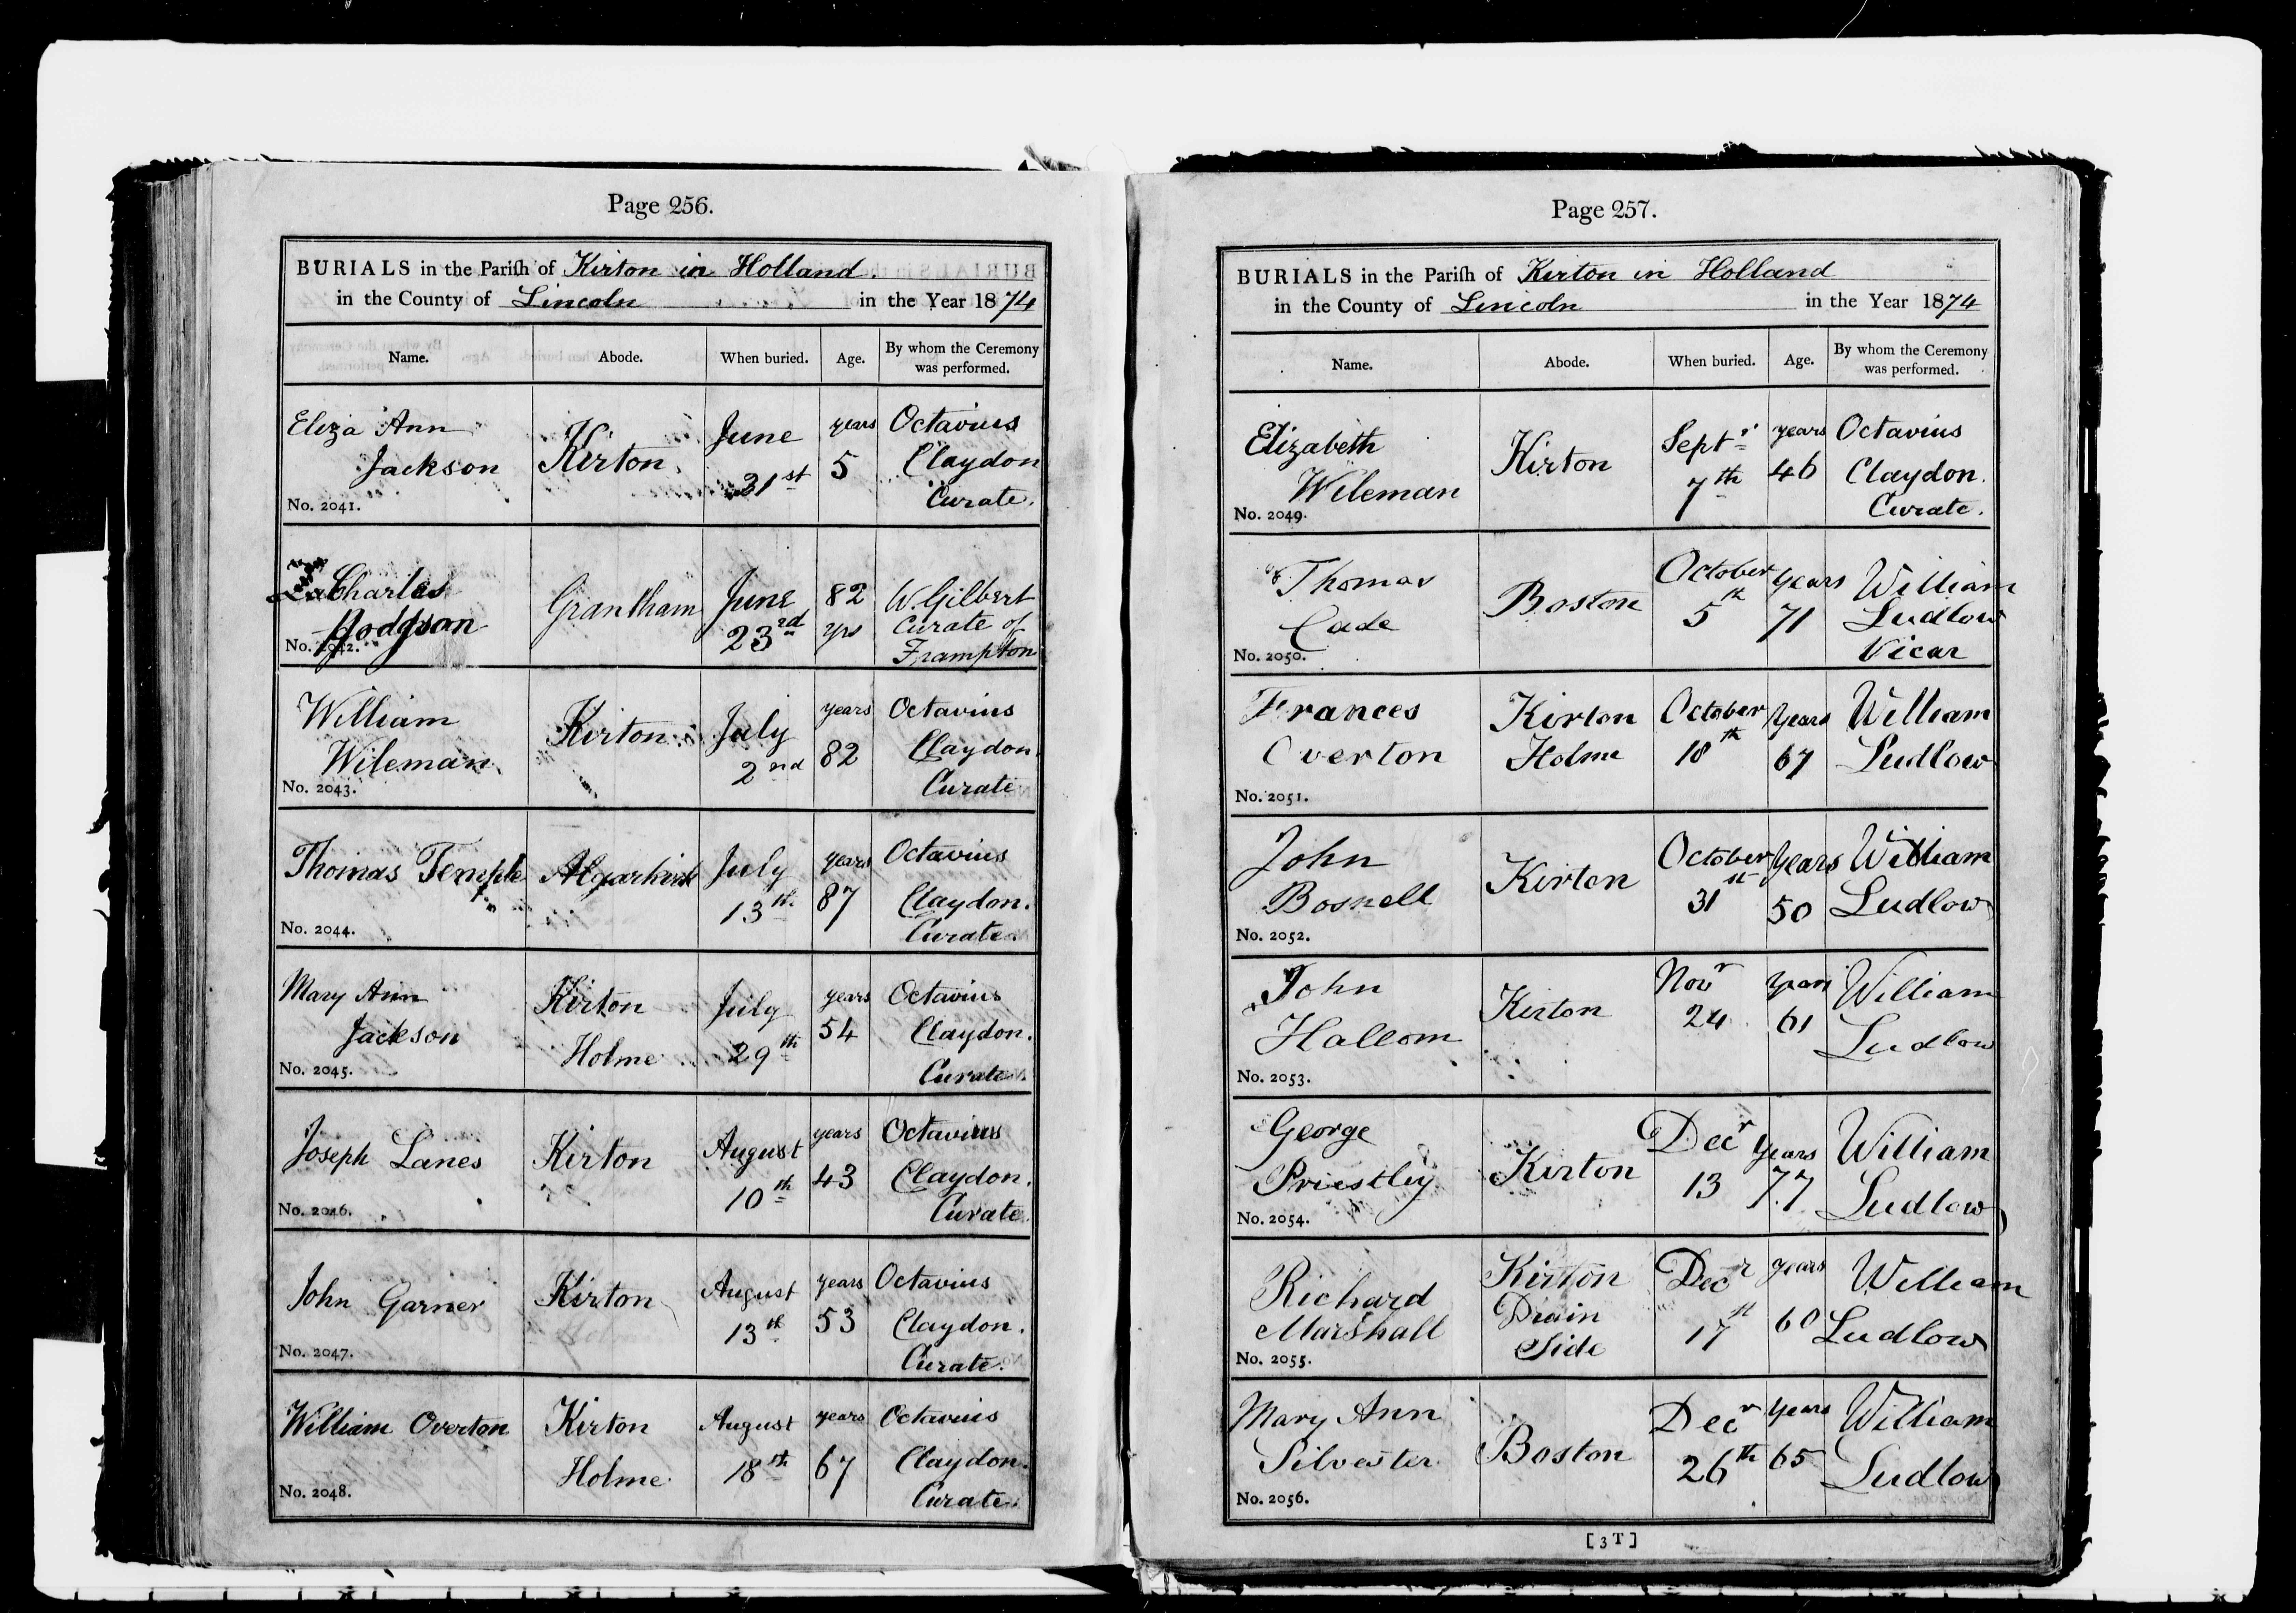 Page 256.
BURIALS in the Pariſh of Kirton in Holland
in the County of Lincoln in the Year 1874
Name. Abode. When buried. Age. By whom the Ceremony
was performed.
Eliza Ann
Jackson
No. 2041.
Kirton
June
21st
years
5
Octavius
Claydon
Curate.
Charles
Hodgson
No. 2042.
Grantham
June
23rd
82
yrs
W. Gilbert
Curate of
Frampton
William
Wileman
No. 2043.
Kirton
July
2nd
years
82
Octavius
Claydon.
Curate
Thomas Temple
No. 2044.
Algarkirk
July
13th
years
87
Octavius
Claydon.
Curate.
Mary Ann
Jackson
No. 2045.
Kirton
Holme
July
29th
years
54
Octavius
Claydon.
Curate.
Joseph Lanes
No. 2046.
Kirton
August
10th
years
43
Octavius
Claydon.
Curate.
John Garner
No. 2047.
Kirton
August
13th
years
53
Octavius
Claydon.
Curate.
William Overton
No. 2048.
Kirton
Holme
August
18th
years
67
Octavius
Claydon.
Curate.
Page 257.
BURIALS in the Pariſh of Kirton in Holland
in the County of Lincoln in the Year 1874
Name. Abode. When buried. Age. By whom the Ceremony
was performed.
Elizabeth
Wileman
No. 2049.
Kirton
Septr
7th
years
46
Octavius
Claydon.
Curate.
Thomas
Cade
No. 2050.
Boston
October
5th
years
71
William
Ludlow
Vicar
Frances
Overton
No. 2051.
Kirton
Holme
October
18th
years
67
William
Ludlow
John
Bosnell
No. 2052.
Kirton
October
31st
years
50
William
Ludlow
John
Hallom
No. 2053.
Kirton
Novr
24
years
61
William
Ludlow
George
Priestley
No. 2054.
Kirton
Decr
13
years
77
William
Ludlow
Richard
Marshall
No. 2055.
Kirton
Drain
Side
Decr
17st
years
60
William
Ludlow
Mary Ann
Silvester
No. 2056.
Boston
Decr
26th
years
65
William
Ludlow
[ 3 T ]